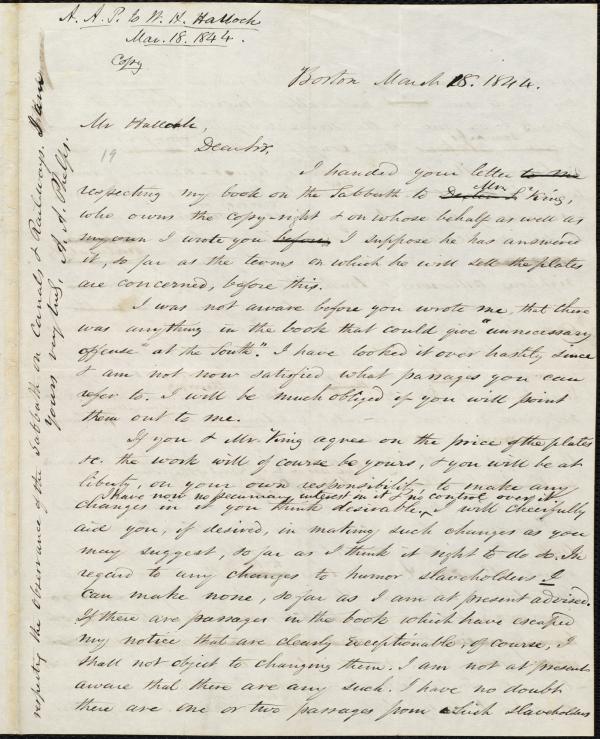 A. A. P. to W. H. Hallock
Mar. 18. 1844.
Copy
Boston March 18. 1844.
Mr Hallock,
19
Dear Sir,
I handed your letter to me
respecting my book on the Sabbath to Mr King,
who owns the copy-right & on whose behalf as well as
my own I wrote you before. I suppose he has answered
it, so far as the terms on which he will sell the plates
are concerned, before this.
I was not aware before you wrote me, that there
was anything in the book that could give "unnecessary
offense" at the South". I have looked it over hastily since
& am not now satisfied what passages you can
refer to. I will be much obliged if you will point
them out to me.
If you & Mr. King agree on the price of the plates
&c. the work will of course be yours, & you will be at
liberty, on your own responsibility to make any
I have now no pecuniary interest in it & no control over it.
changes in it you think desirable. I will cheerfully
aid you, if desired, in making such changes as you
may suggest, so far as I think it right to do so. In
regard to any changes to humor slaveholders I
can make none, so far as I am at present advised.
If there are passages in the book which have escaped
my notice that are clearly exceptionable, of course, I
shall not object to changing them. I am not at present
aware that there are any such. I have no doubt
there are one or two passages from which slaveholders
respecting the observance of the Sabbath on Canals & Railways. I am
Yours my bro, A. A. Phelps.